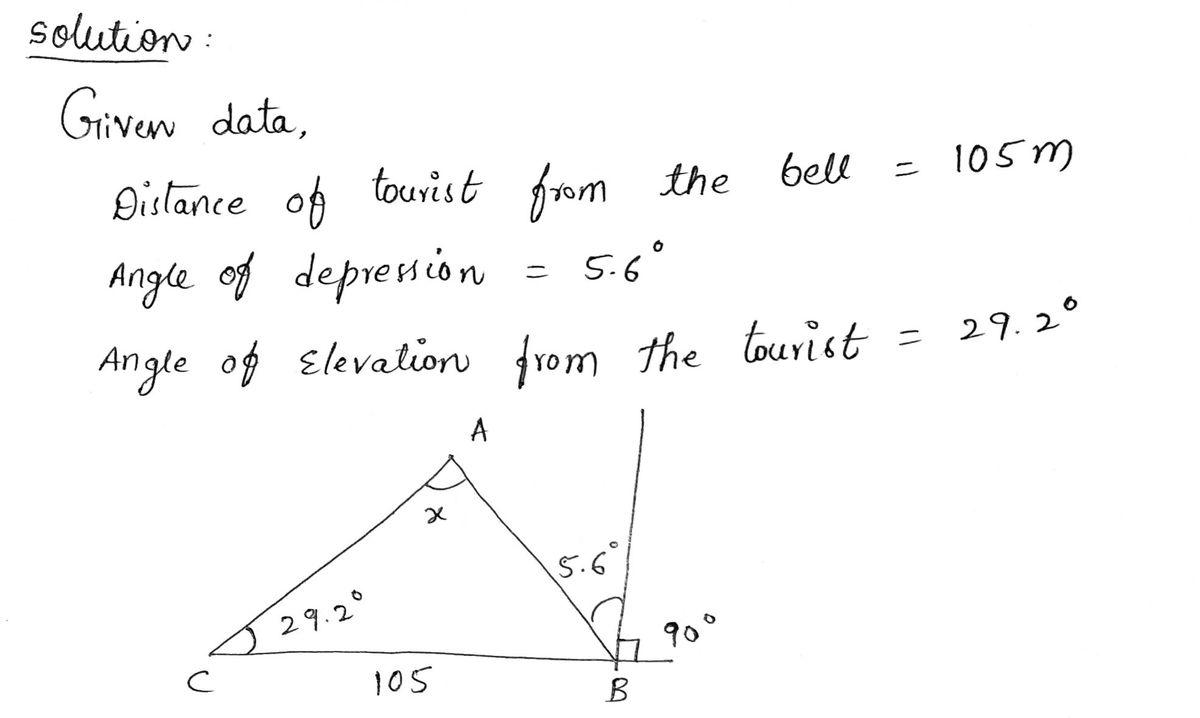 solution:
Given data,
Distance of tourist from the bell = 105 m
Angle of depression = 5.6°
Angle of Elevation from the tourist = 29.2°
A
x
5.6°
29.2°
90°
C
105
B